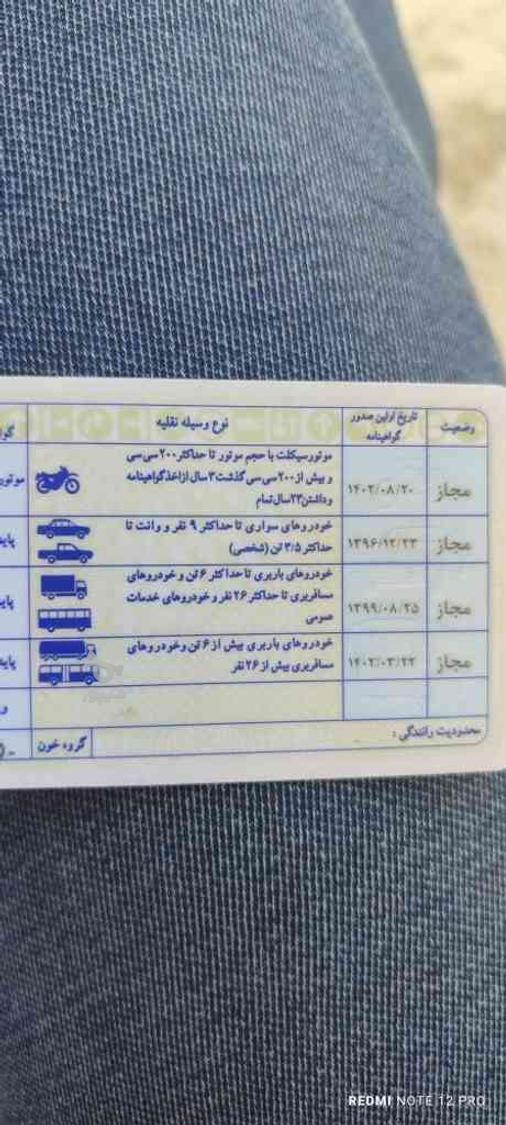 وضعیت
تاریخ اولین صدور
گواهینامه
نوع وسیله نقلیه
مجاز
۱۴۰۲/۰۸/۲۰
موتورسیکلت با حجم موتور تا حداکثر ۲۰۰ سی سی
و بیش از ۲۰۰ سی سی گذشت ۳ سال از اخذ گواهینامه
و داشتن ۲۳ سال تمام
موتور
مجاز
۱۳۹۶/۱۲/۲۳
خودروهای سواری تا حداکثر ۹ نفر و وانت تا
حداکثر ۳/۵ تن (شخصی)
مجاز
۱۳۹۹/۰۸/۲۵
خودروهای باربری تا حداکثر ۶ تن و خودروهای
مسافربری تا حداکثر ۲۶ نفر و خودروهای خدمات
عمومی
مجاز
۱۴۰۲/۰۳/۲۲
خودروهای باربری بیش از ۶ تن وخودروهای
مسافربری بیش از ۲۶ نفر
محدودیت رانندگی :
گروه خون
REDMI NOTE 12 PRO